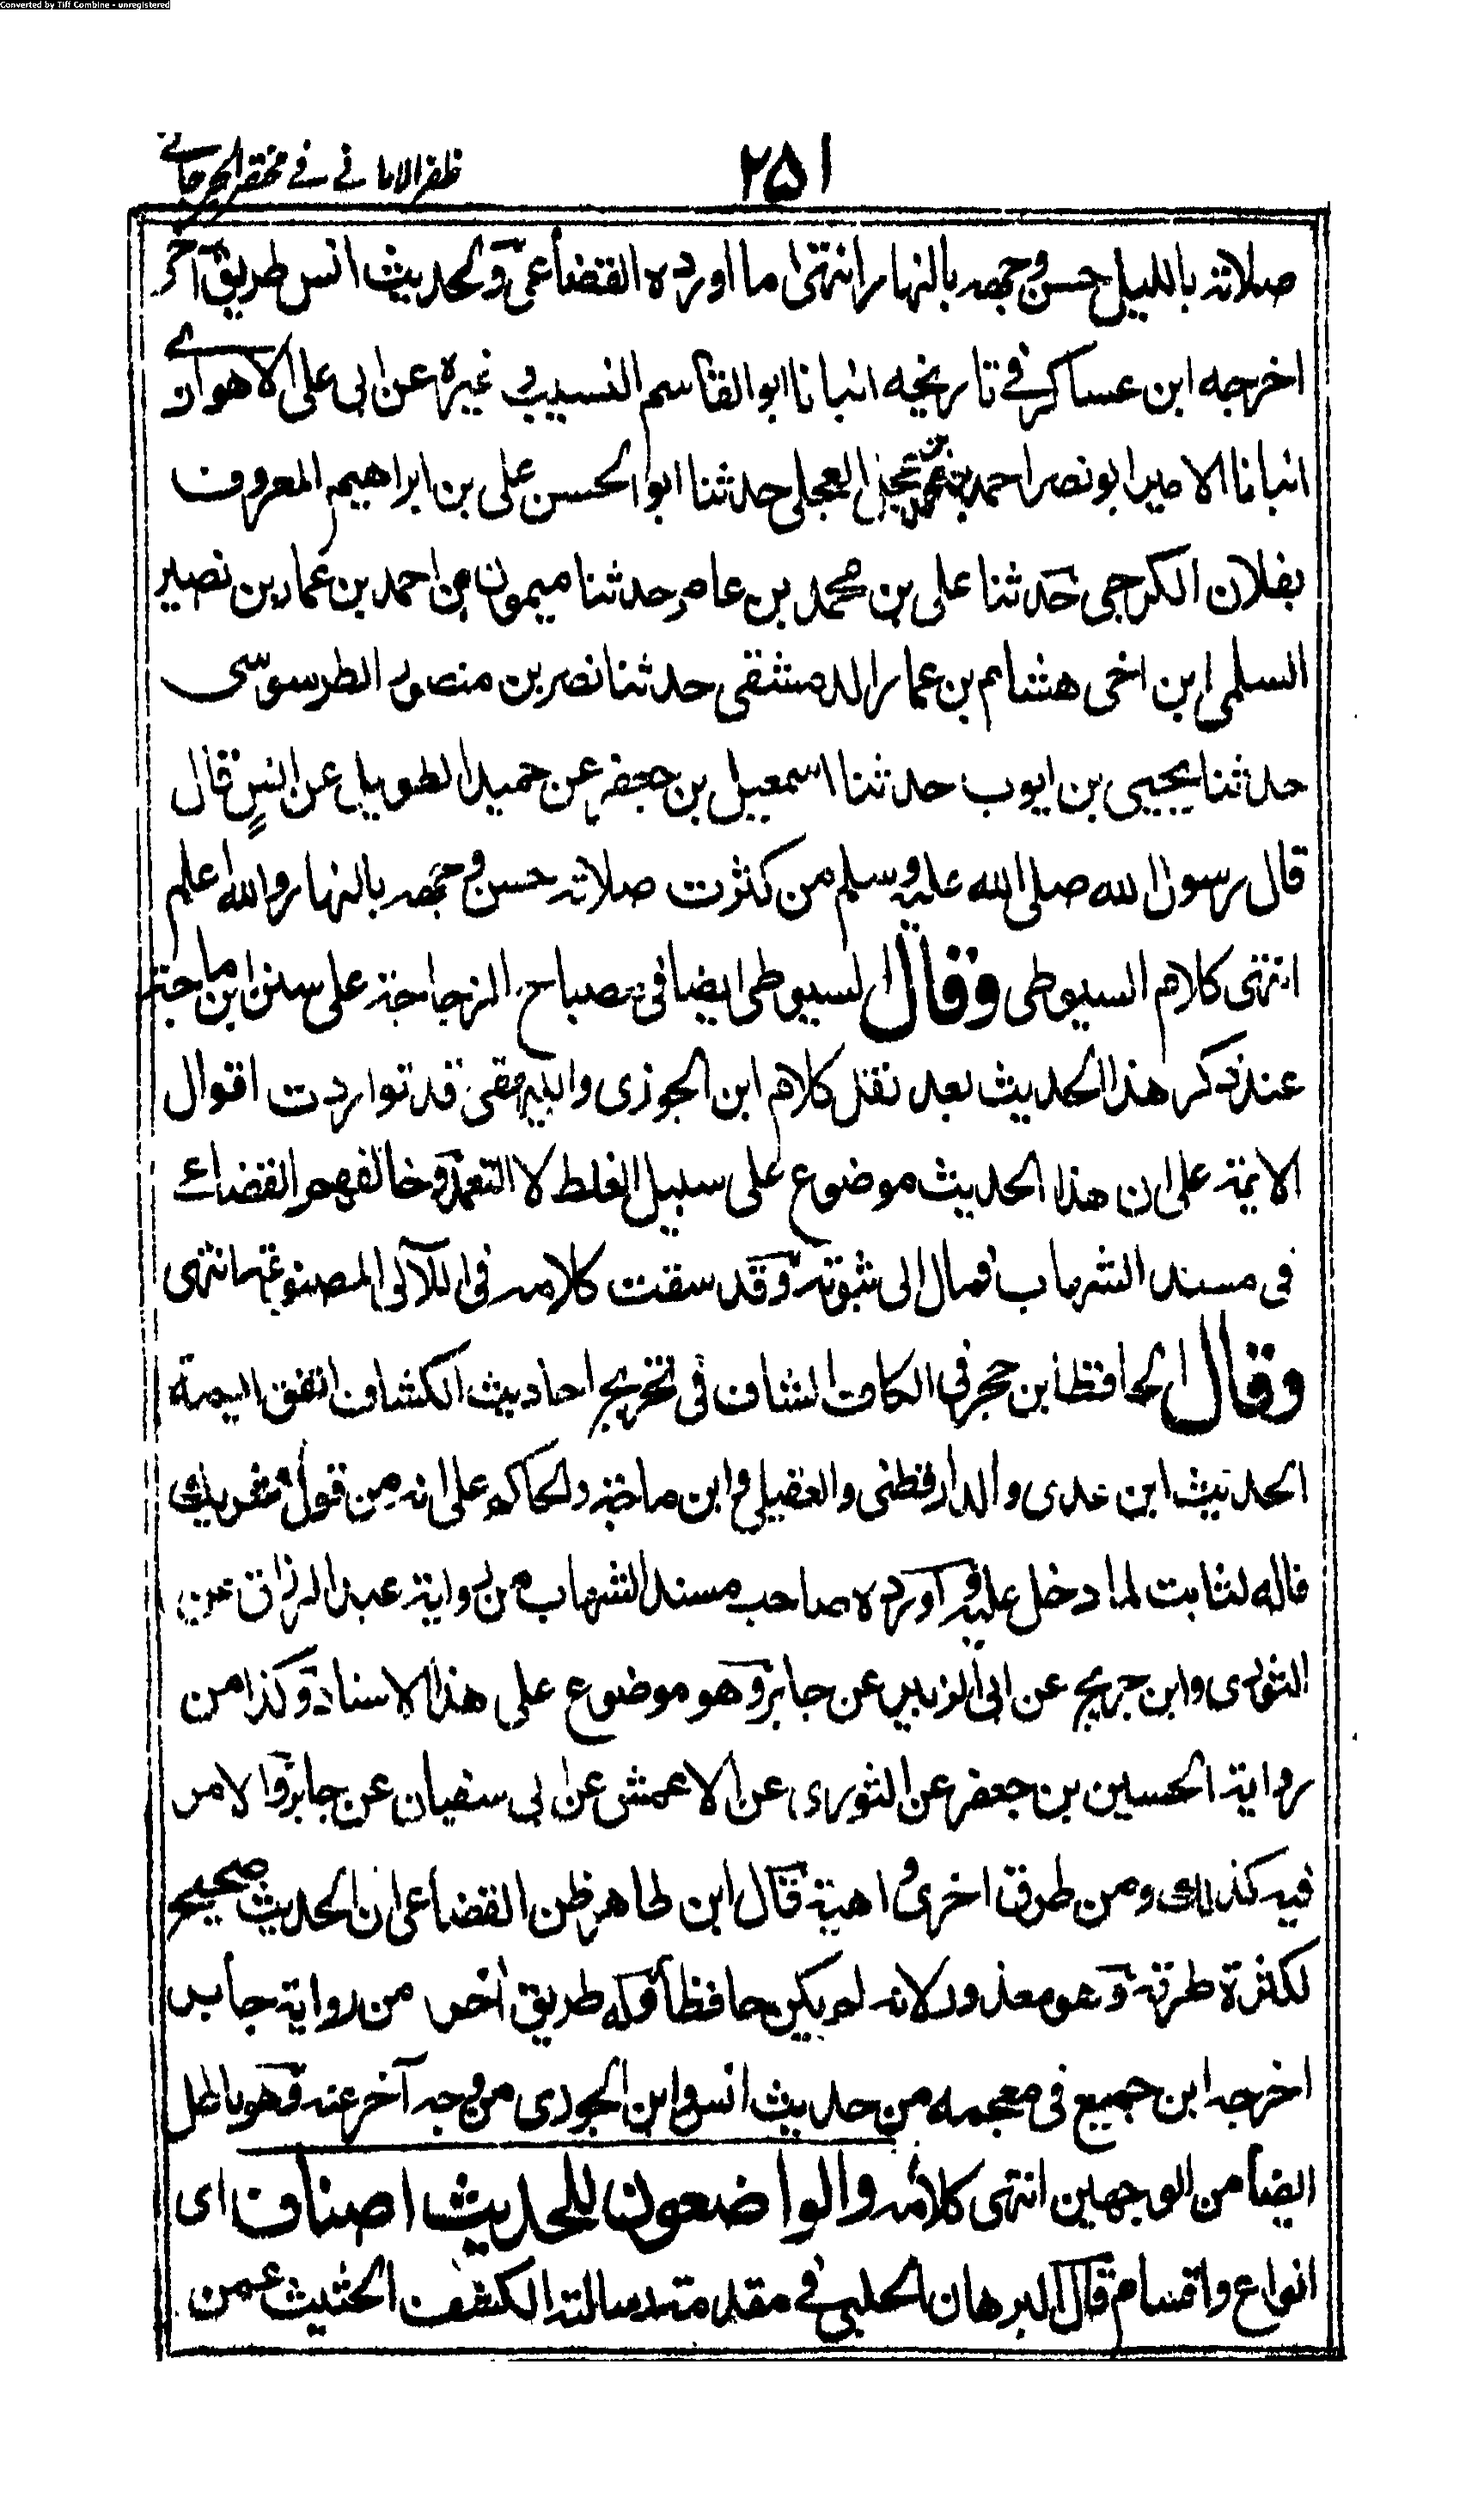 Converted by Tiff Combine - unregistered
ظفر الاماني في مختصر الجرجاني
٢٥١
صلاته بالليل حسن وجهه بالنهار انتهى ما اورده القضاعى ولحديث انس طريق آخر
اخرجه ابن عساكر في تاريخه انبانا ابو القاسم النسيب وغيره عن ابى على الاهوازے
انبانا الامير ابو نصر احمد بن العجلى حدثنا ابو الحسن على بن ابراهيم المعروف
بفلان الكرجى حدثنا على بن محمد بن عامر حدثنا ميمون بن احمد بن عمار بن نصير
السلمى ابن اخى هشام بن عمار الدمشقى حدثنا نصر بن منصور الطرسوسى
حدثنا يحيى بن ايوب حدثنا اسمعيل بن جعفر عن حميد الطويل عن انس قال
قال رسول الله صلى الله عليه وسلم من كثرت صلاته حسن وجهه بالنهار والله اعلم
انتهى كلام السيوطى وقال السيوطى ايضا فى مصباح الزجاجة على سنن ابن ماجة
عند ذكر هذا الحديث بعد نقل كلام ابن الجوزى والبيهقى قد تواردت اقوال
الايمة على ان هذا الحديث موضوع على سبيل الغلط لا التعمد وخالفهم القضاعے
فى مسند الشهاب فمال الى ثبوته وقد سقت كلامه فى اللآلى المصنوعة انتهى
وقال الحافظ ابن حجر فى الكاف الشاف فى تخريج احاديث الكشاف اتفق ايمة
الحديث ابن عدى والدارقطنى والعقيلى وابن ماجة والحاكم على انه من قول شريك
قاله لثابت لما دخل عليه واورده صاحب مسند الشهاب من رواية عبد الرزاق عن
الثورى وابن جريج عن ابى الزبير عن جابر وهو موضوع على هذا الاسناد وكذا من
رواية الحسين بن جعفر عن الثورى عن الاعمش عن ابى سفيان عن جابر والامر
فيه كذلك ومن طرق اخرى واهية قال ابن طاهر ظن القضاعى ان الحديث صحيح
لكثرة طرقه وهو معذور لانه لم يكن حافظا وله طريق اخرى من رواية جابر
اخرجه ابن جميع فى معجمه من حديث انس وابن الجوزى من وجه آخر عنه وهو باطل
ايضا من الوجهين انتهى كلامه والواضعون للحديث اصناف اى
انواع واقسام قال البرهان الحلبى في مقدمة رسالته الكشف الحثيث عمن